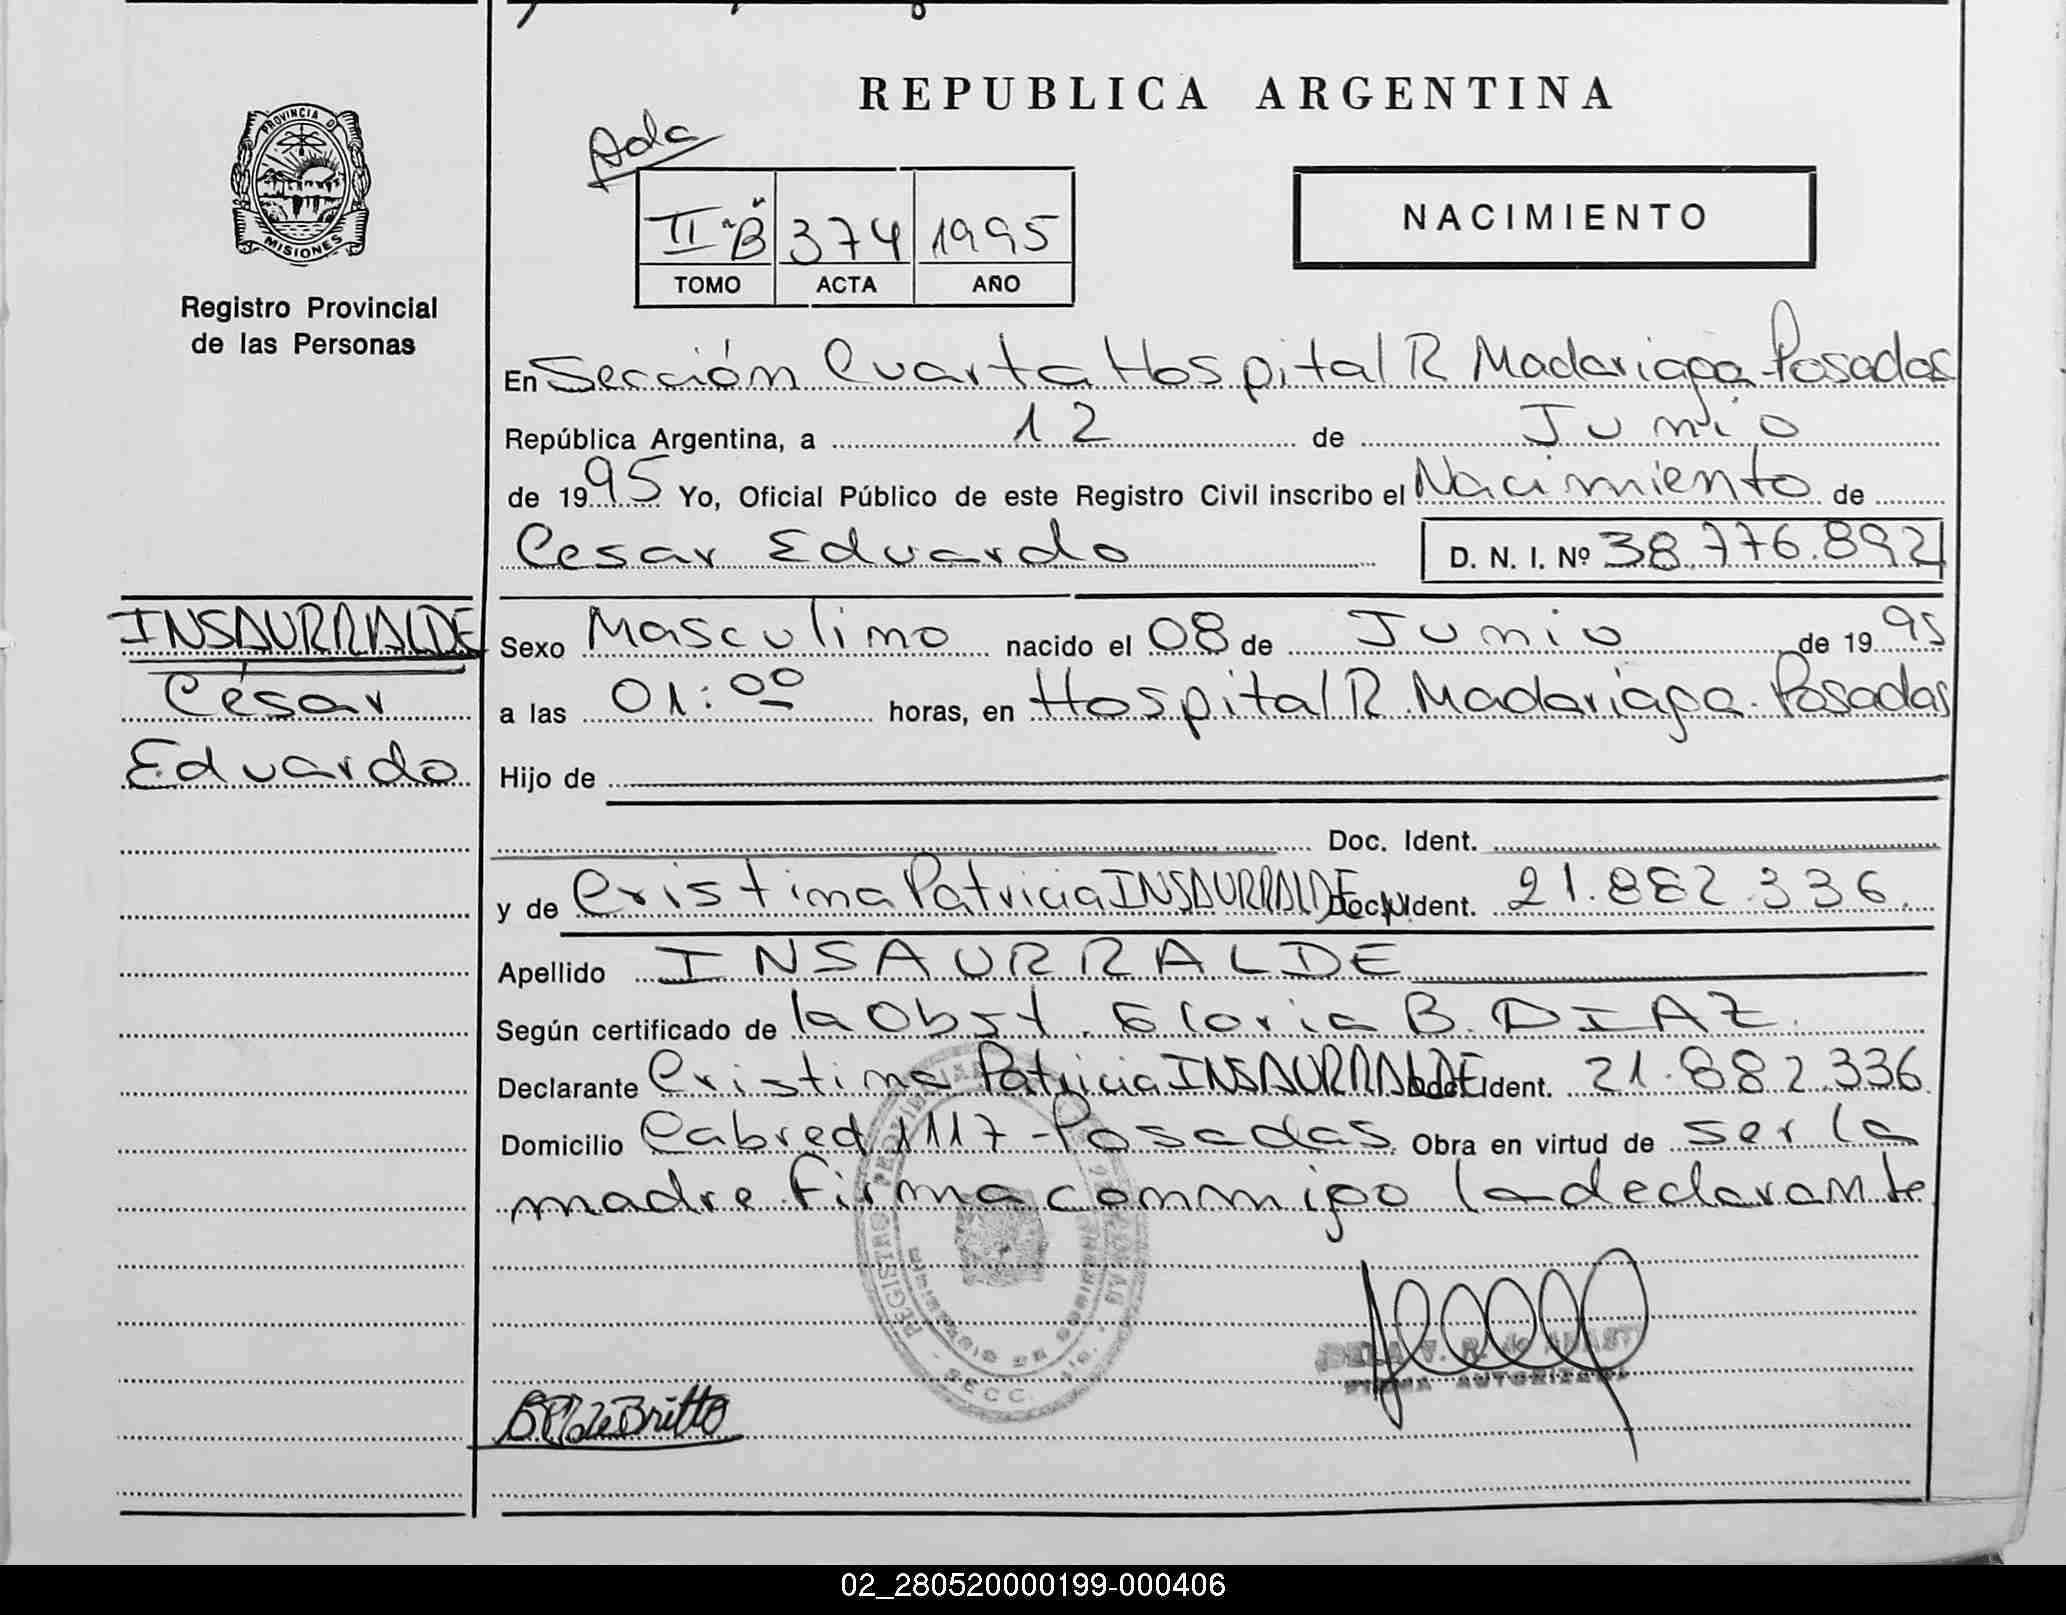 REPUBLICA ARGENTINA
PROVINCIA D
MISIONES
Registro Provincial
de las Personas
II "B" 374 1995
TOMO ACTA AÑO
NACIMIENTO
En Sección Cuarta Hospital R Madariaga Posadas
República Argentina, a 12 de Junio
de 1995 Yo, Oficial Público de este Registro Civil inscribo el Nacimiento de
Cesar Eduardo D. N. I. Nº 38.776.892
INSAURRALDE
César
Eduardo
Sexo Masculino nacido el 08 de Junio de 1995
a las 01:00 horas, en Hospital R. Madariaga. Posadas
Hijo de
Doc. Ident.
y de Cristina Patricia INSAURRALDE Doc. Ident. 21.882.336.
Apellido INSAURRALDE
Según certificado de la Obst. Gloria B. DIAZ.
Declarante Cristina Patricia INSAURRALDE Doc. Ident. 21.882.336
Domicilio Cabred 1117 - Posadas. Obra en virtud de ser la
madre. Firma conmigo la declarante
REGISTRO
SECC.
FIRMA AUTORIZADA
de Britto
02_280520000199-000406